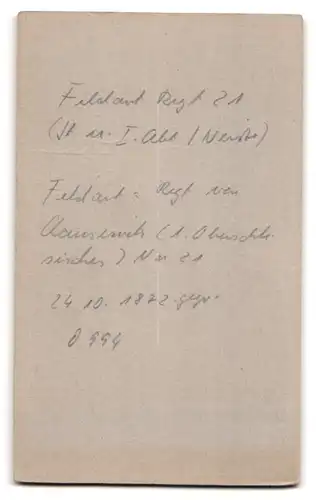 Feldart Regt 21
(St u. I. Abt / Neisse)
Feldart = Regt von
Clausewitz (1. Oberschle
sisches) Nr. 21
24.10.1872 gegr.
O 994